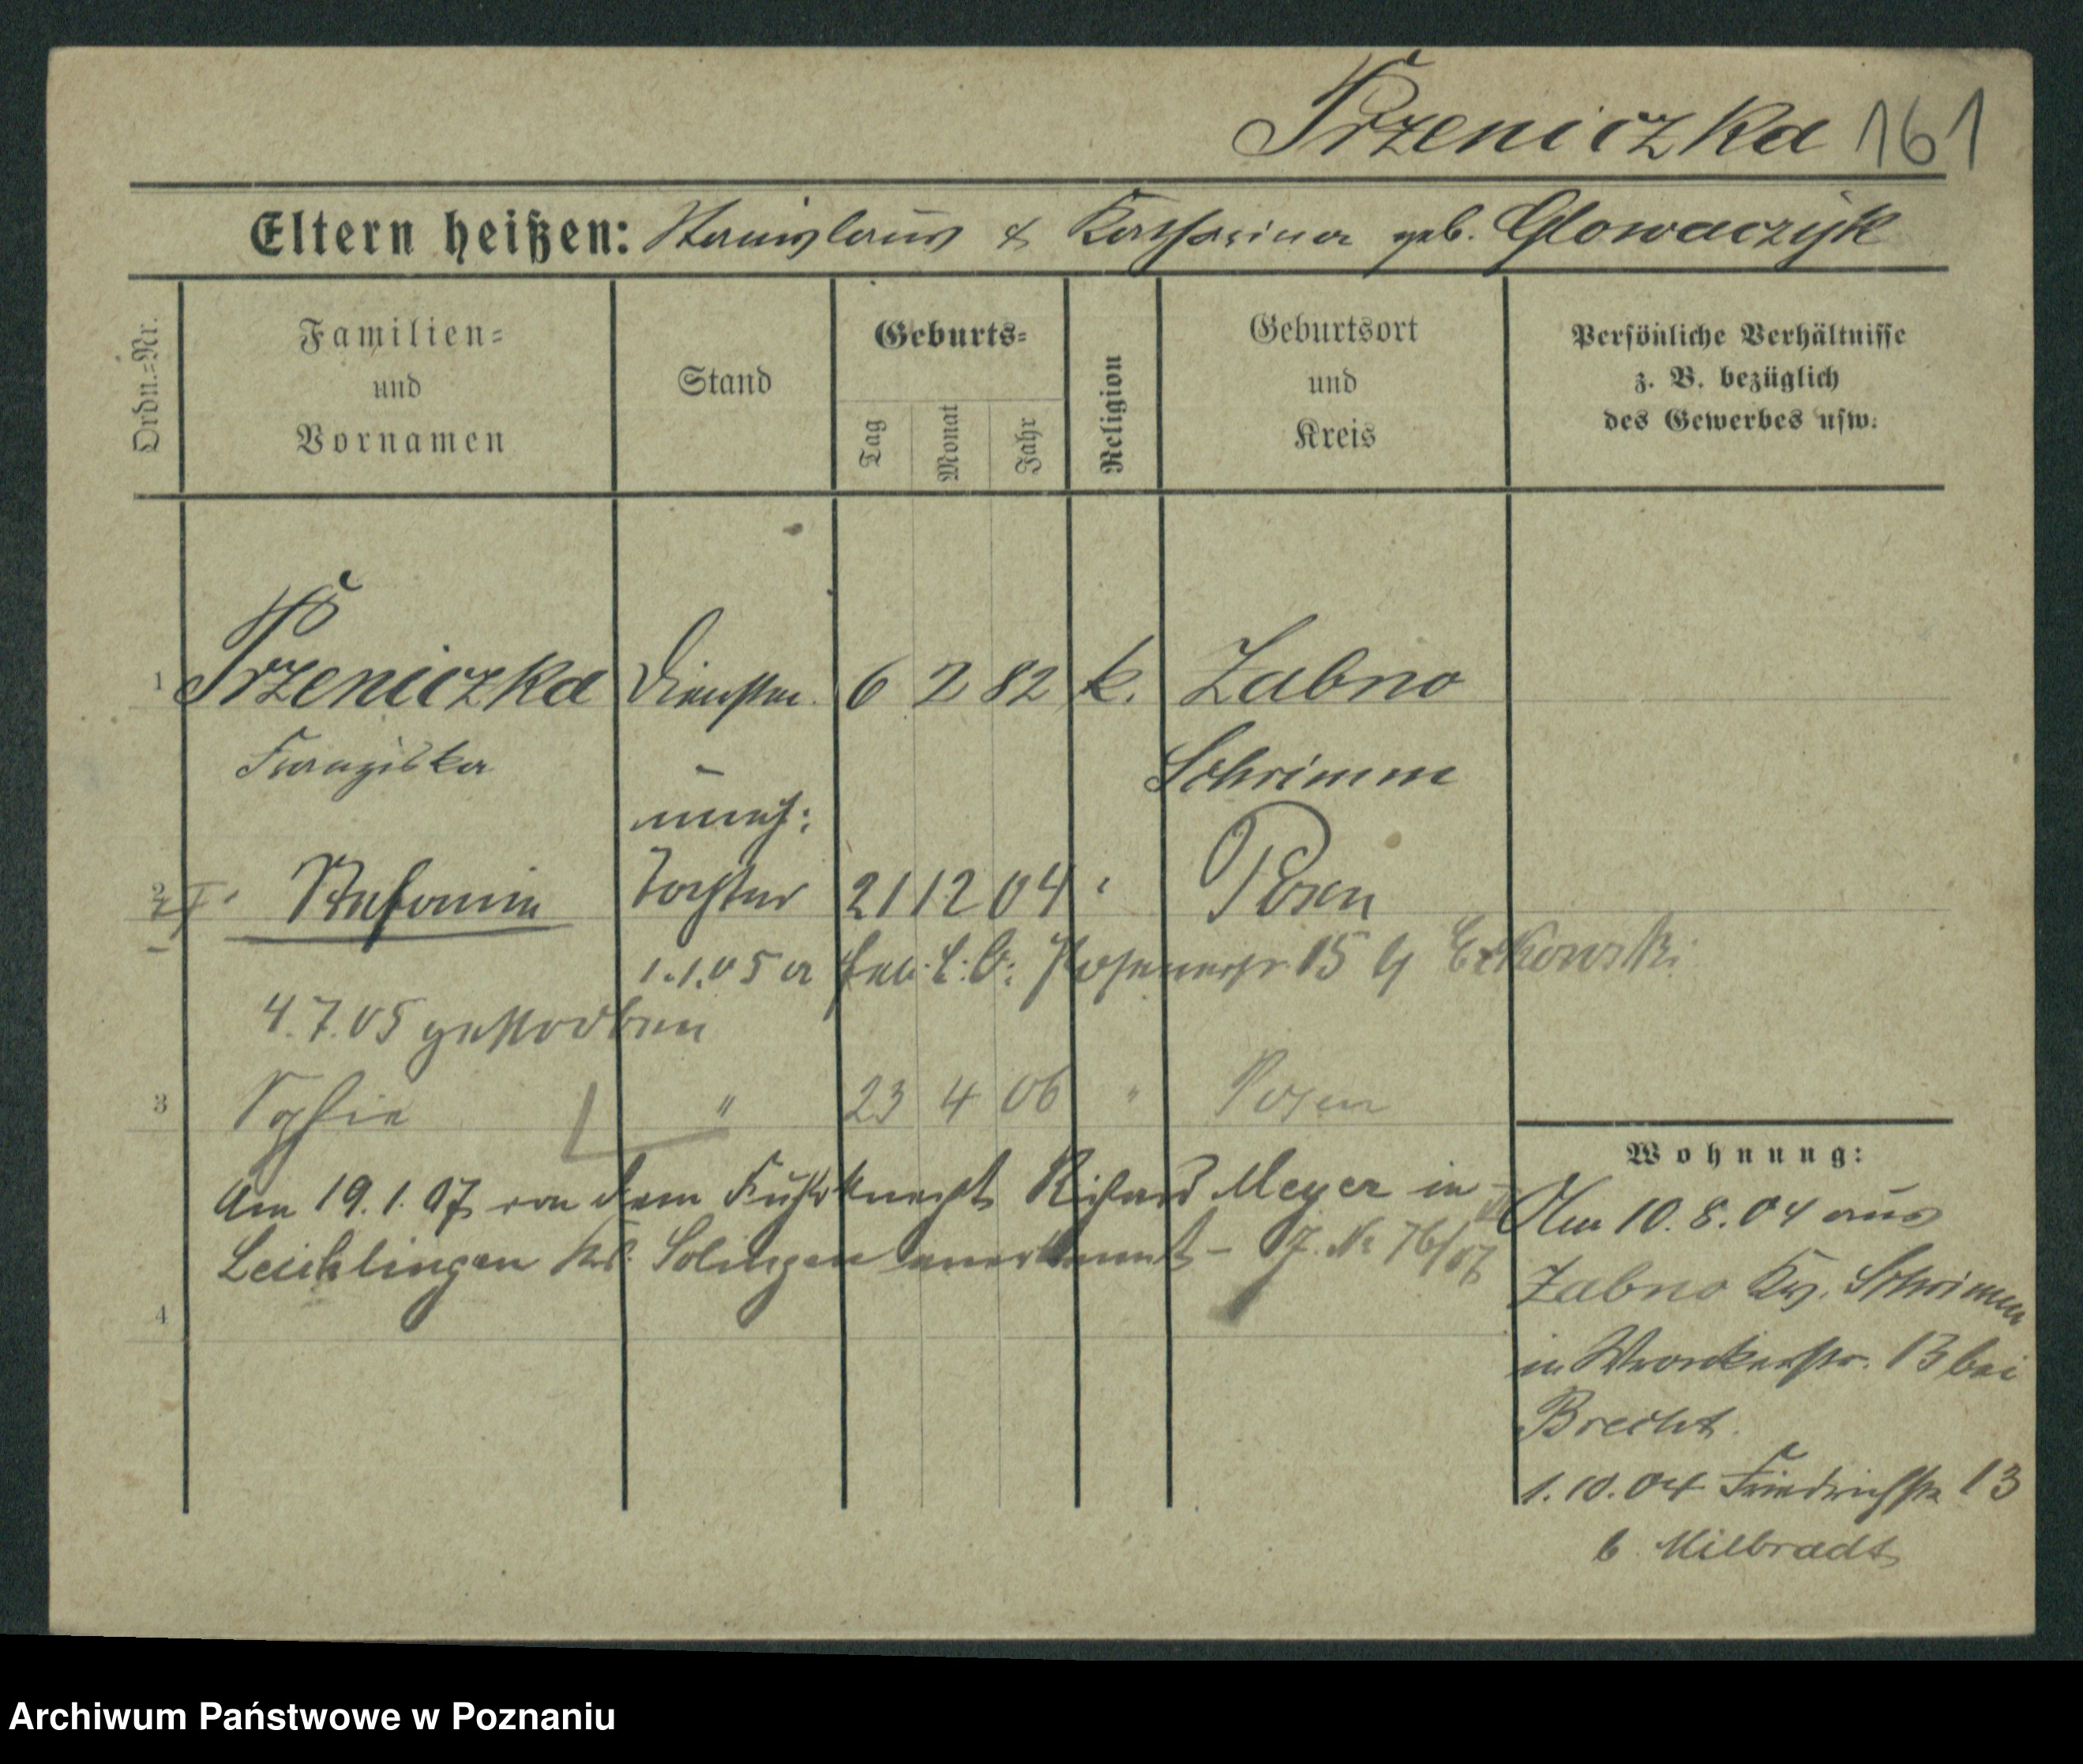 Przeniczka 161
Eltern heißen: Stanislaus & Katharina geb. Glowaczyk
Ordn.=Nr.
Familien=
und
Vornamen
Stand
Geburts=
Tag
Monat
Jahr
Religion
Geburtsort
und
Kreis
Persönliche Verhältnisse
z. B. bezüglich
des Gewerbes usw.
1 Przeniczka 6 2 82 k. Zabno
Franziska Schrimm
uneh:
2 Stefania Tochter 21 12 04 " Posen
1.1.05 a 15
4.7.05 gestorben
3 Sophie " 23 4 06 " Posen
Am 19.1.07 von dem Richard Meyer in
Leichlingen Kr. Solingen anerkannt - J. No 76/07
4
Wohnung:
Am 10.8.04 aus
Zabno Kr. Schrimm
in Wronkerstr. 13 bei
Brecht.
1.10.04 Friedrichstr 13
b. Milbradt
Archiwum Państwowe w Poznaniu